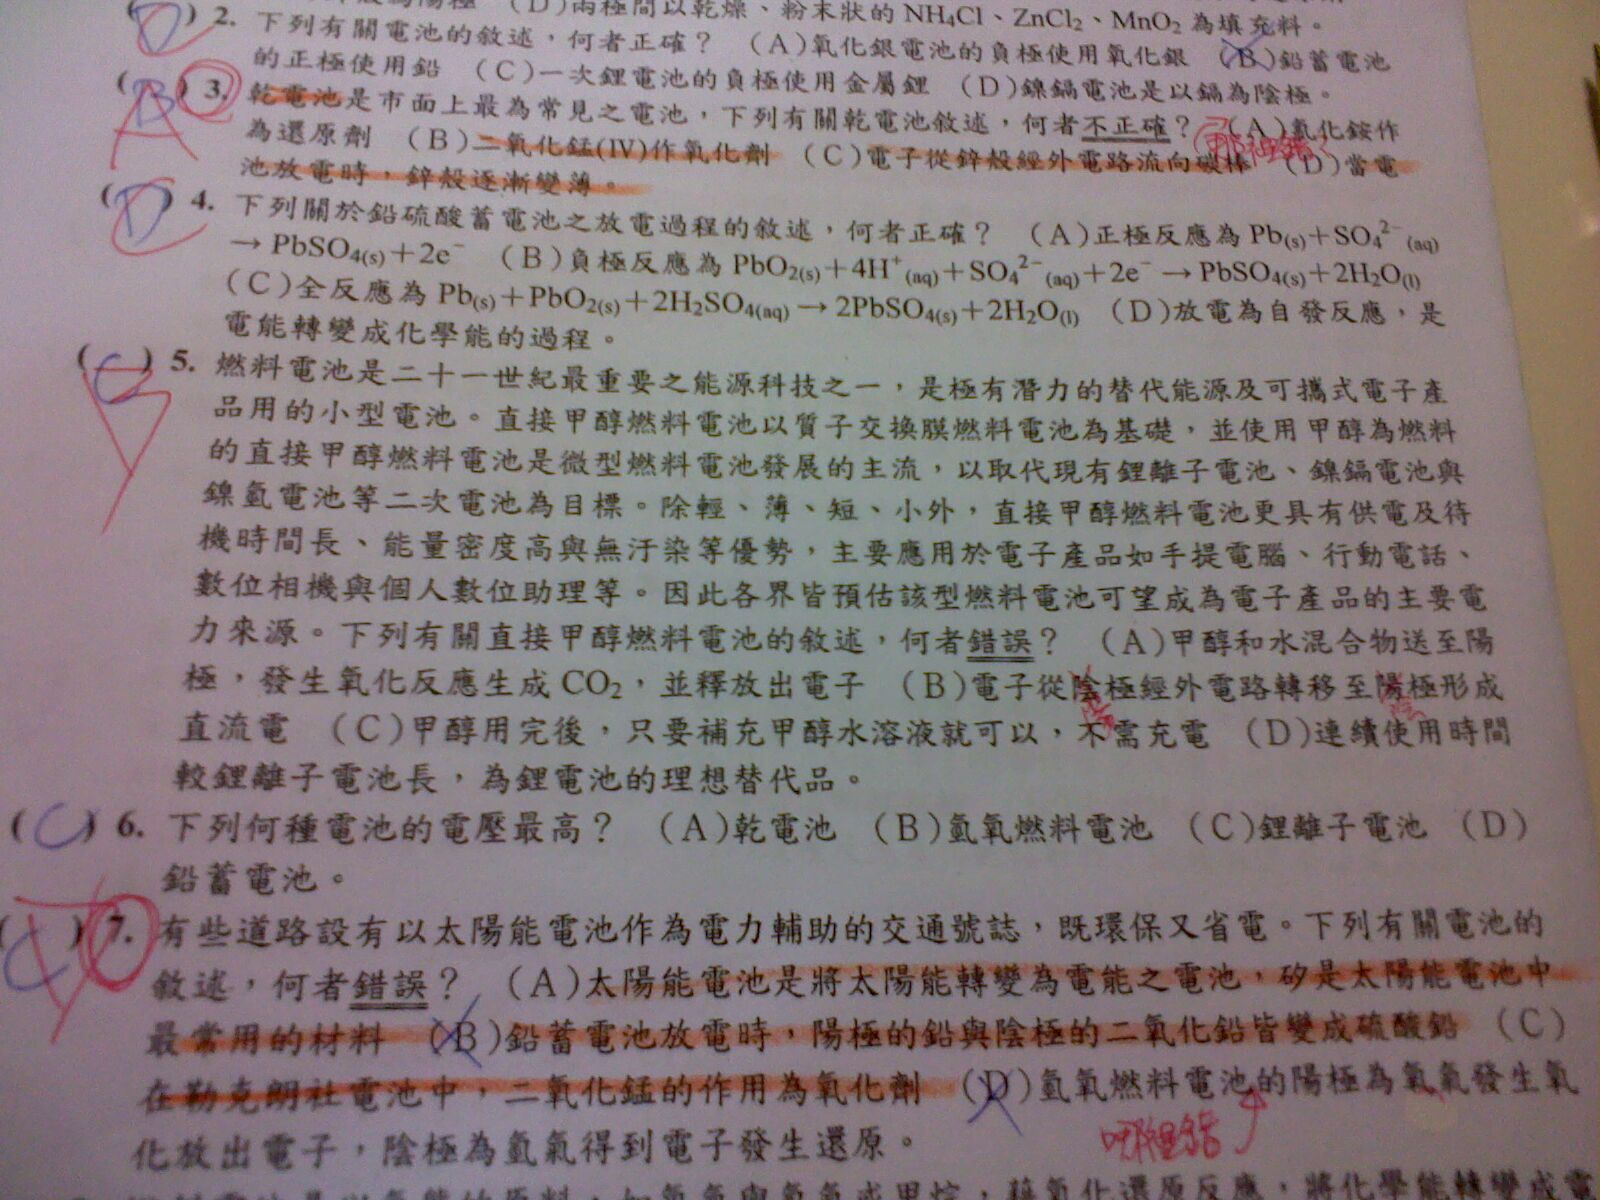 (D)兩極間以乾燥、粉末狀的 NH₄Cl、ZnCl₂、MnO₂ 為填充料。
( D ) 2. 下列有關電池的敘述，何者正確？ (A)氧化銀電池的負極使用氧化銀 (B)鉛蓄電池
的正極使用鉛 (C)一次鋰電池的負極使用金屬鋰 (D)鎳鎘電池是以鎘為陰極。
( B ) 3. 乾電池是市面上最為常見之電池，下列有關乾電池敘述，何者不正確？ (A)氯化銨作
A
為還原劑 (B)二氧化錳(IV)作氧化劑 (C)電子從鋅殼經外電路流向碳棒 (D)當電
池放電時，鋅殼逐漸變薄。
( D ) 4. 下列關於鉛硫酸蓄電池之放電過程的敘述，何者正確？ (A)正極反應為 Pb(s)+SO₄²⁻(aq)
→ PbSO₄(s)+2e⁻ (B)負極反應為 PbO₂(s)+4H⁺(aq)+SO₄²⁻(aq)+2e⁻ → PbSO₄(s)+2H₂O(l)
(C)全反應為 Pb(s)+PbO₂(s)+2H₂SO₄(aq) → 2PbSO₄(s)+2H₂O(l) (D)放電為自發反應，是
電能轉變成化學能的過程。
( C ) 5. 燃料電池是二十一世紀最重要之能源科技之一，是極有潛力的替代能源及可攜式電子產
品用的小型電池。直接甲醇燃料電池以質子交換膜燃料電池為基礎，並使用甲醇為燃料
的直接甲醇燃料電池是微型燃料電池發展的主流，以取代現有鋰離子電池、鎳鎘電池與
鎳氫電池等二次電池為目標。除輕、薄、短、小外，直接甲醇燃料電池更具有供電及待
機時間長、能量密度高與無汙染等優勢，主要應用於電子產品如手提電腦、行動電話、
數位相機與個人數位助理等。因此各界皆預估該型燃料電池可望成為電子產品的主要電
力來源。下列有關直接甲醇燃料電池的敘述，何者錯誤？ (A)甲醇和水混合物送至陽
極，發生氧化反應生成 CO₂，並釋放出電子 (B)電子從陰極經外電路轉移至陽極形成
直流電 (C)甲醇用完後，只要補充甲醇水溶液就可以，不需充電 (D)連續使用時間
較鋰離子電池長，為鋰電池的理想替代品。
( C ) 6. 下列何種電池的電壓最高？ (A)乾電池 (B)氫氧燃料電池 (C)鋰離子電池 (D)
鉛蓄電池。
( C ) 7. 有些道路設有以太陽能電池作為電力輔助的交通號誌，既環保又省電。下列有關電池的
敘述，何者錯誤？ (A)太陽能電池是將太陽能轉變為電能之電池，矽是太陽能電池中
最常用的材料 (B)鉛蓄電池放電時，陽極的鉛與陰極的二氧化鉛皆變成硫酸鉛 (C)
在勒克朗社電池中，二氧化錳的作用為氧化劑 (D)氫氧燃料電池的陽極為氧氣發生氧
化放出電子，陰極為氫氣得到電子發生還原。
哪裡錯